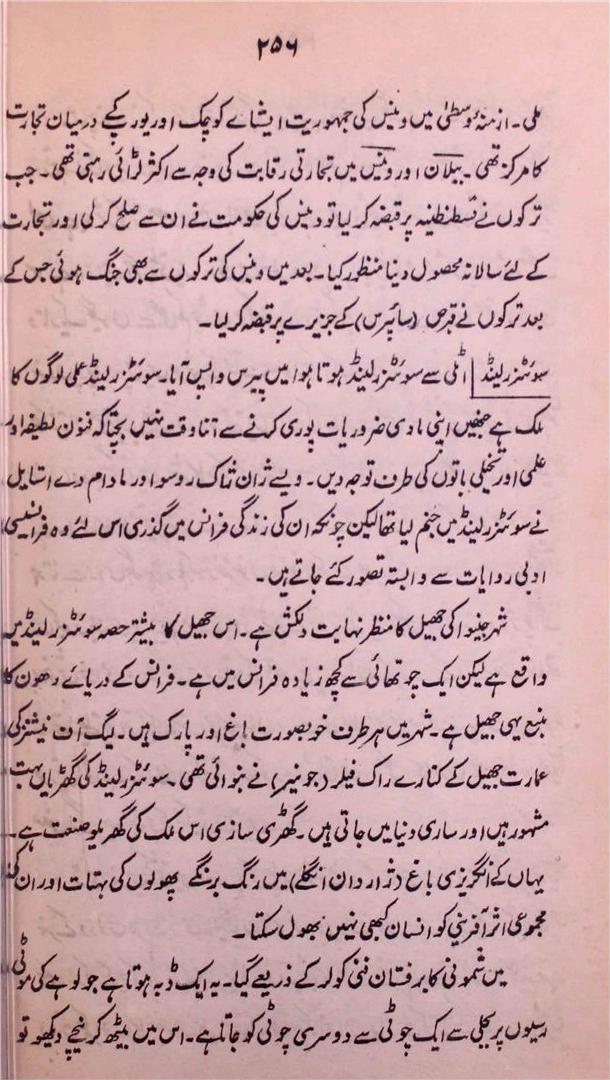 ۲۵۶
ملی۔ ازمنۂ وسطیٰ میں وینس کی جمہوریت ایشاے کوچک اور یورپ کے درمیان تجارت
کا مرکز تھی۔ میلان اور وینس میں تجارتی رقابت کی وجہ سے اکثر لڑائی رہتی تھی۔ جب
ترکوں نے قسطنطنیہ پر قبضہ کر لیا تو وینس کی حکومت نے ان سے صلح کر لی اور تجارت
کے لئے سالانہ محصول دینا منظور کیا۔ بعد میں وینس کی ترکوں سے بھی جنگ ہوئی جس کے
بعد ترکوں نے قبرص (سائپرس) کے جزیرے پر قبضہ کر لیا۔
سوئٹزرلینڈ اٹلی سے سوئٹزرلینڈ ہوتا ہوا میں پیرس واپس آیا۔ سوئٹزرلینڈ عملی لوگوں کا
ملک ہے جنھیں اپنی مادی ضروریات پوری کرنے سے اتنا وقت نہیں بچتا کہ فنون لطیفہ اور
علمی اور تخیلی باتوں کی طرف توجہ دیں۔ ویسے ژان ژاک روسو اور مادام دے استایل
نے سوئٹزرلینڈ میں جنم لیا تھا لیکن چونکہ ان کی زندگی فرانس میں گذری اس لئے وہ فرانسیسی
ادبی روایات سے وابستہ تصور کئے جاتے ہیں۔
شہر جنیوا کی جھیل کا منظر نہایت دلکش ہے۔ اس جھیل کا بیشتر حصہ سوئٹزرلینڈ میں
واقع ہے لیکن ایک چوتھائی سے کچھ زیادہ فرانس میں ہے۔ فرانس کے دریائے رھون کا
منبع یہی جھیل ہے۔ شہر میں ہر طرف خوبصورت باغ اور پارک ہیں۔ لیگ آف نیشنز کی
عمارت جھیل کے کنارے راک فیلر (جونیر) نے بنوائی تھی۔ سوئٹزرلینڈ کی گھڑیاں بہت
مشہور ہیں اور ساری دنیا میں جاتی ہیں۔ گھڑی سازی اس ملک کی گھریلو صنعت ہے۔
یہاں کے انگریزی باغ (ژاردان انگلے) میں رنگ برنگے پھولوں کی بہتات اور ان کی
مجموعی اثر آفرینی کو انسان کبھی نہیں بھول سکتا۔
میں شمونی کا برفستان فنی کولر کے ذریعے گیا۔ یہ ایک ڈبہ ہوتا ہے جو لوہے کی موٹی
رسیوں پر بجلی سے ایک چوٹی سے دوسری چوٹی کو جاتا ہے۔ اس میں بیٹھ کر نیچے دیکھو تو